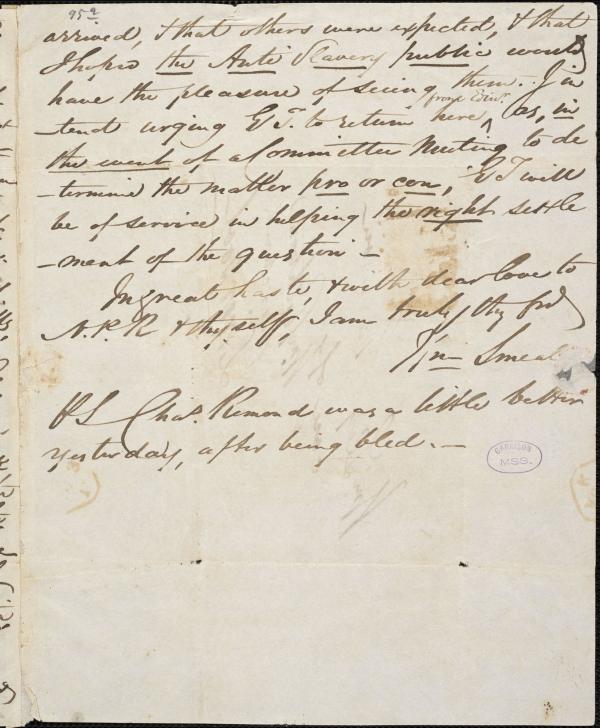 95a
arrived, & that others were expected, & that
I hoped the Anti Slavery public would
have the pleasure of seeing them. I in
from Edinr.
-tend urging G T. to return here, as, in
the event of a Committee Meeting to de
-termine the matter pro or con, G T will
be of service in helping the right settle
-ment of the question –
In great haste, & with dear love to
N. P. R & thyself, I am truly thy frd
Wm Smeal
PS Chas. Remond was a little better
yesterday, after being bled. –
GARRISON
MSS.